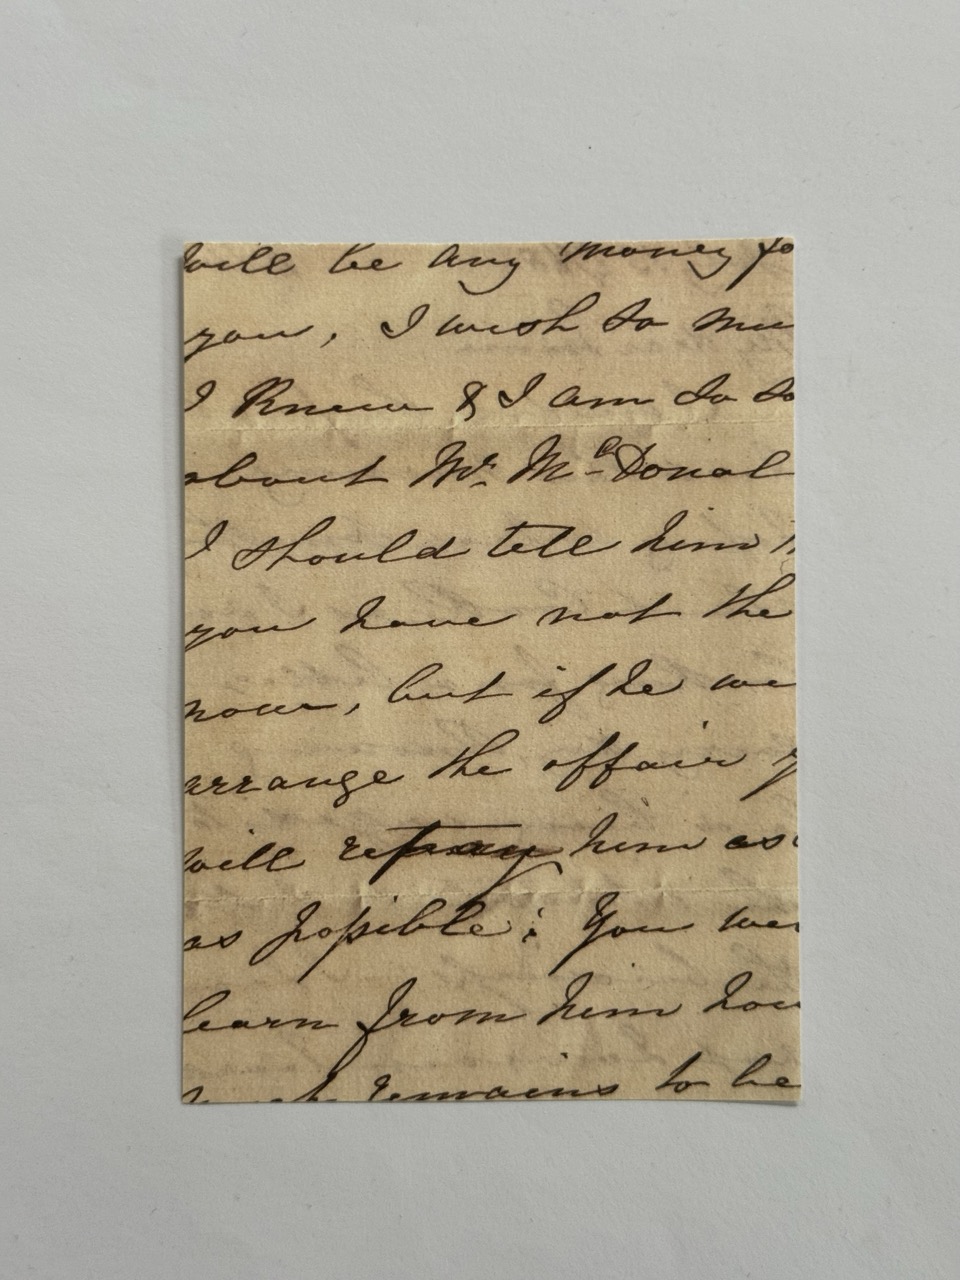 will be any money fo
you, I wish to mu
I Knew & I am so so
about Mr. Mc Donal
I should tell him
you have not the
now, but if he we
arrange the affair y
will repay him as
as possible; You we
learn from him how
remains to be